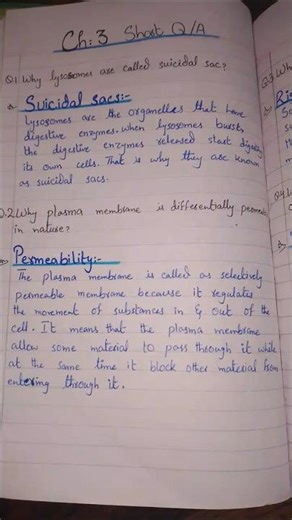 Ch:3 Short Q/A
Q1 Why lysosomes are called suicidal sac?
Suicidal sacs:-
Lysosomes are the organelles that have
digestive enzymes. When lysosomes bursts,
the digestive enzymes released start digesting
its own cells. That is why they are known
as suicidal sacs.
Q.2 Why plasma membrane is differentially permeable
in nature?
Permeability:-
The plasma membrane is called as selectively
permeable membrane because it regulates
the movement of substances in & out of the
cell. It means that the plasma membrane
allow some material to pass through it while
at the same time it block other material from
entering through it.
Q3 Wha